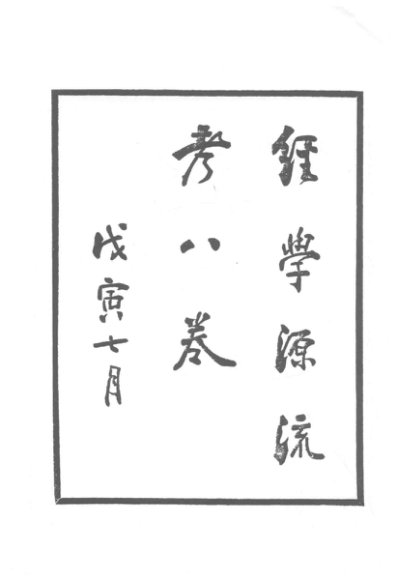 經學源流
考八卷
戊寅七月